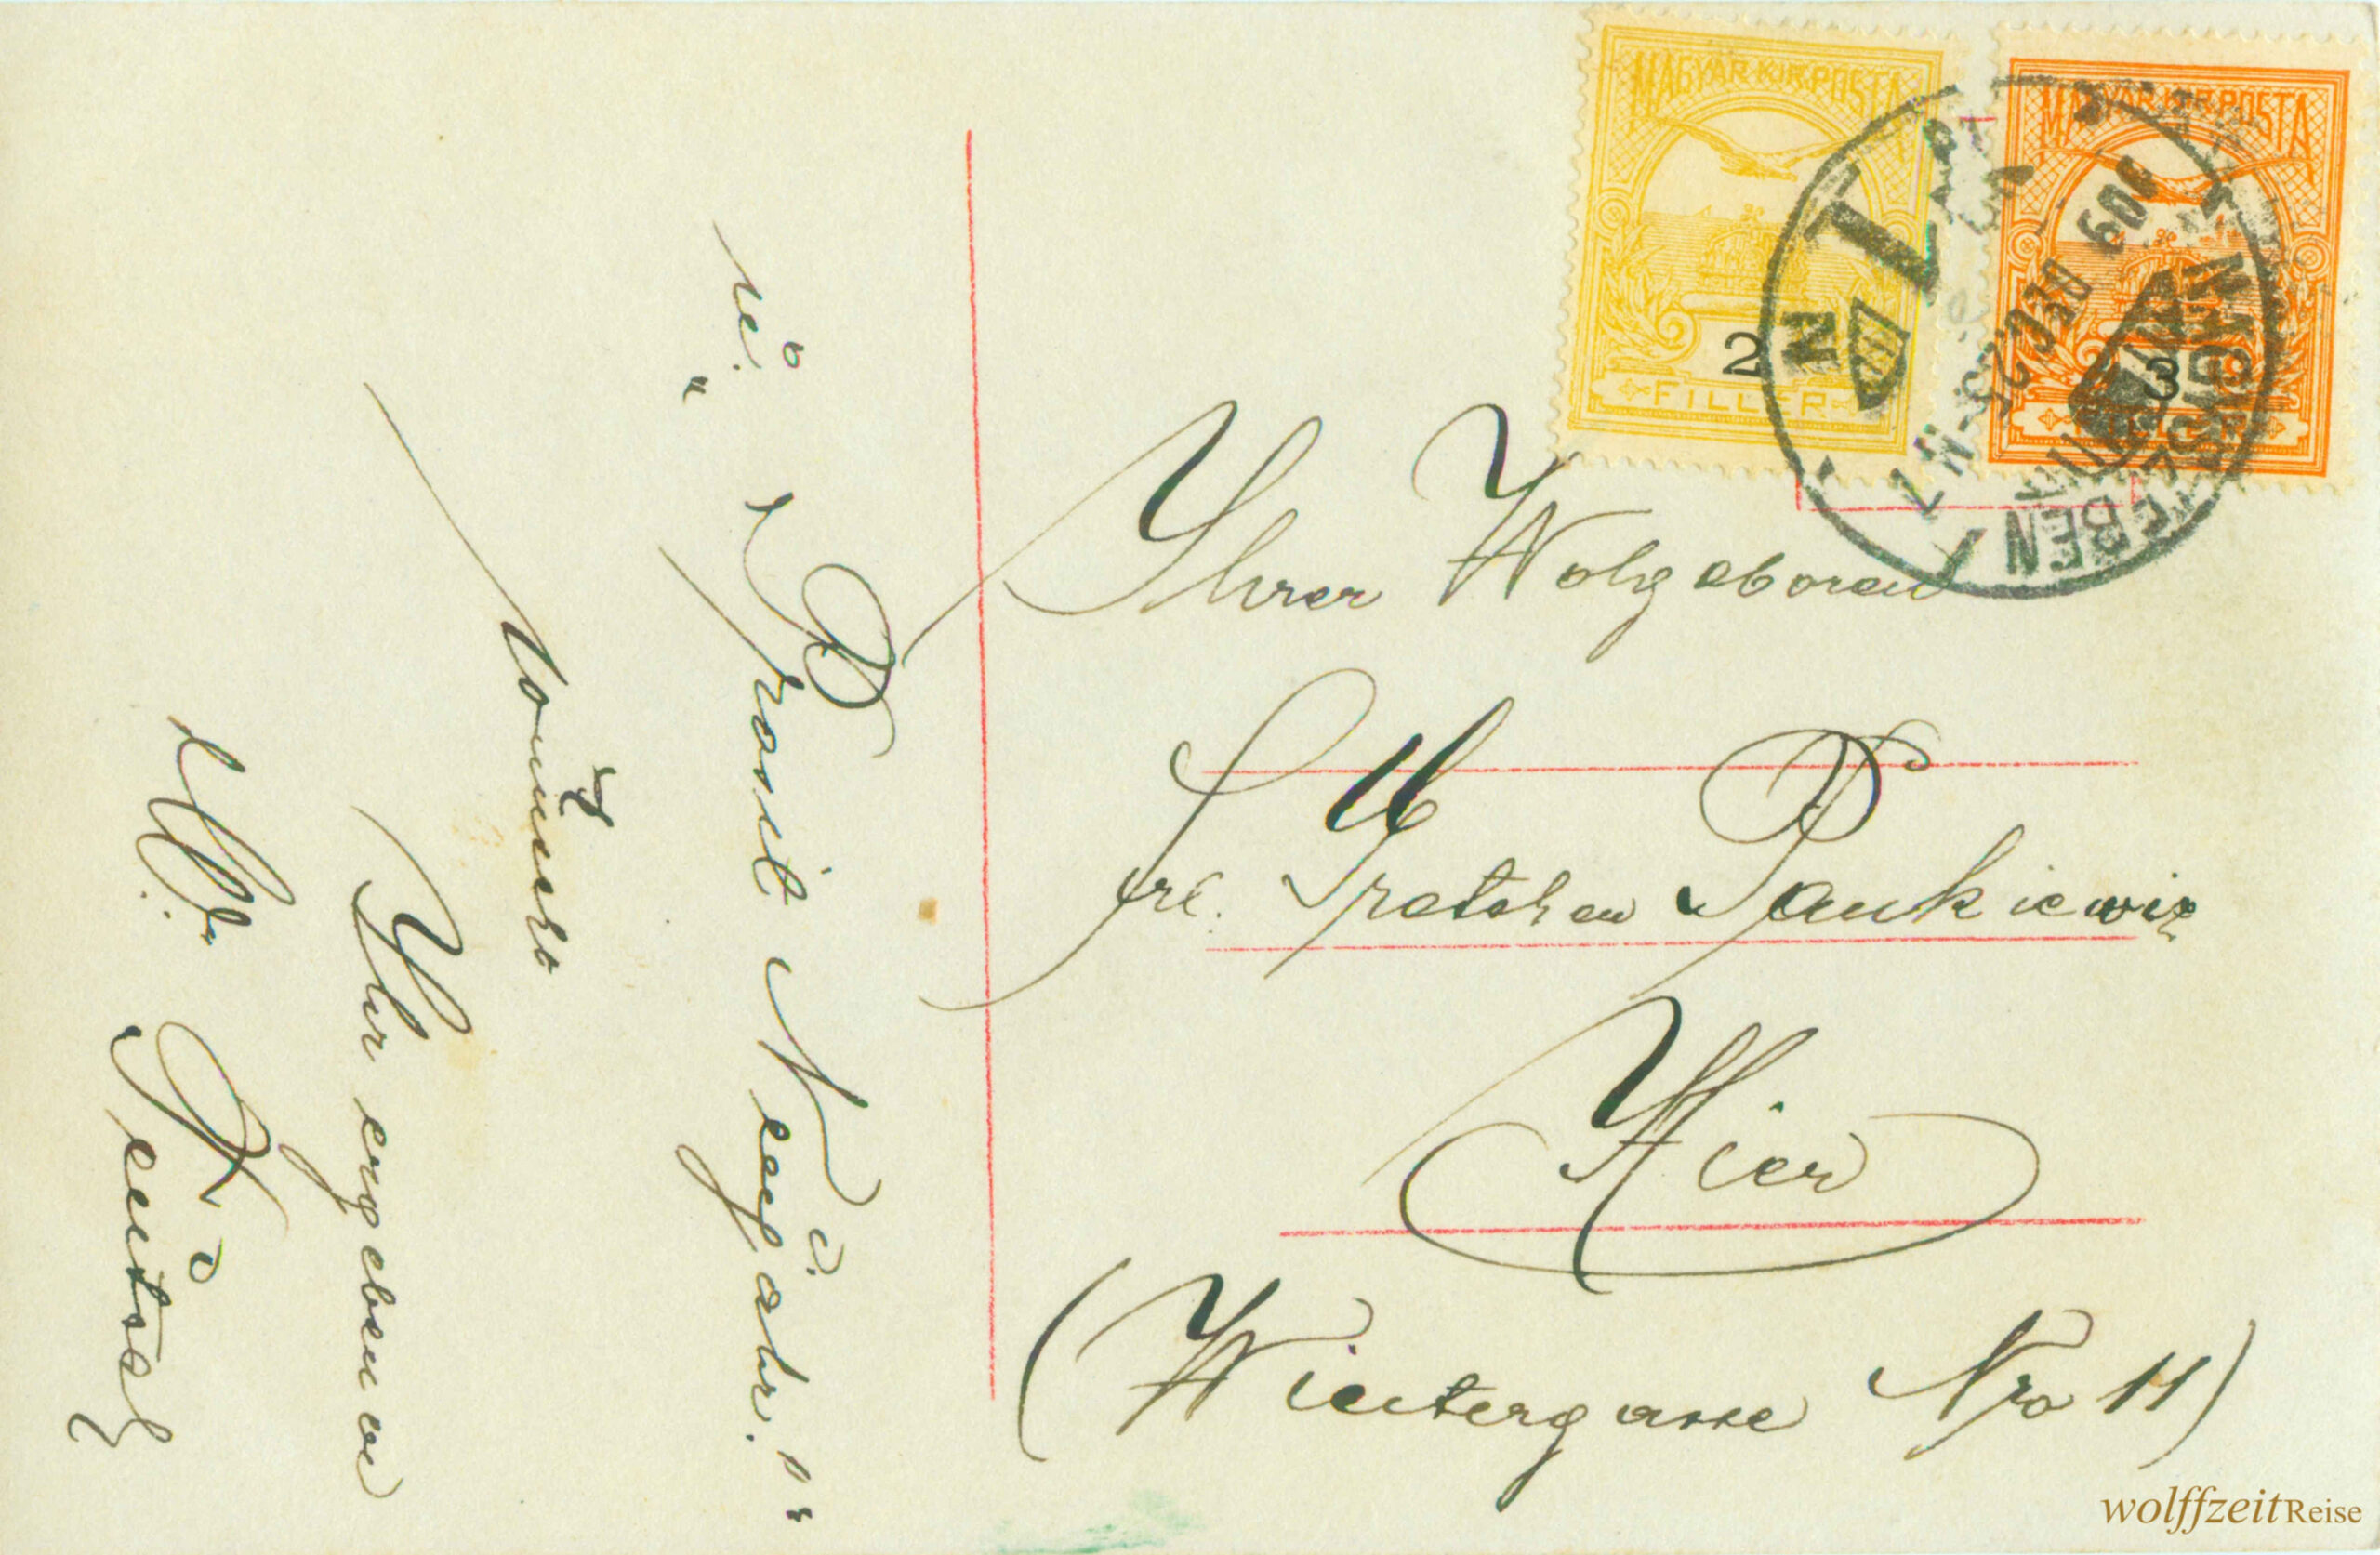 MAGYAR KIR. POSTA
2
FILLÉR
MAGYAR KIR. POSTA
3
909 DEC 31
NAGYSZEBEN
Ihrer Wolgeboren
Frl. Gretchen Pankiewiz
Hier
(Wintergasse Nro 11)
"Prosit Neujahr."
wünscht
Ihr ergebener
W. Teutsch
wolffzeitReise